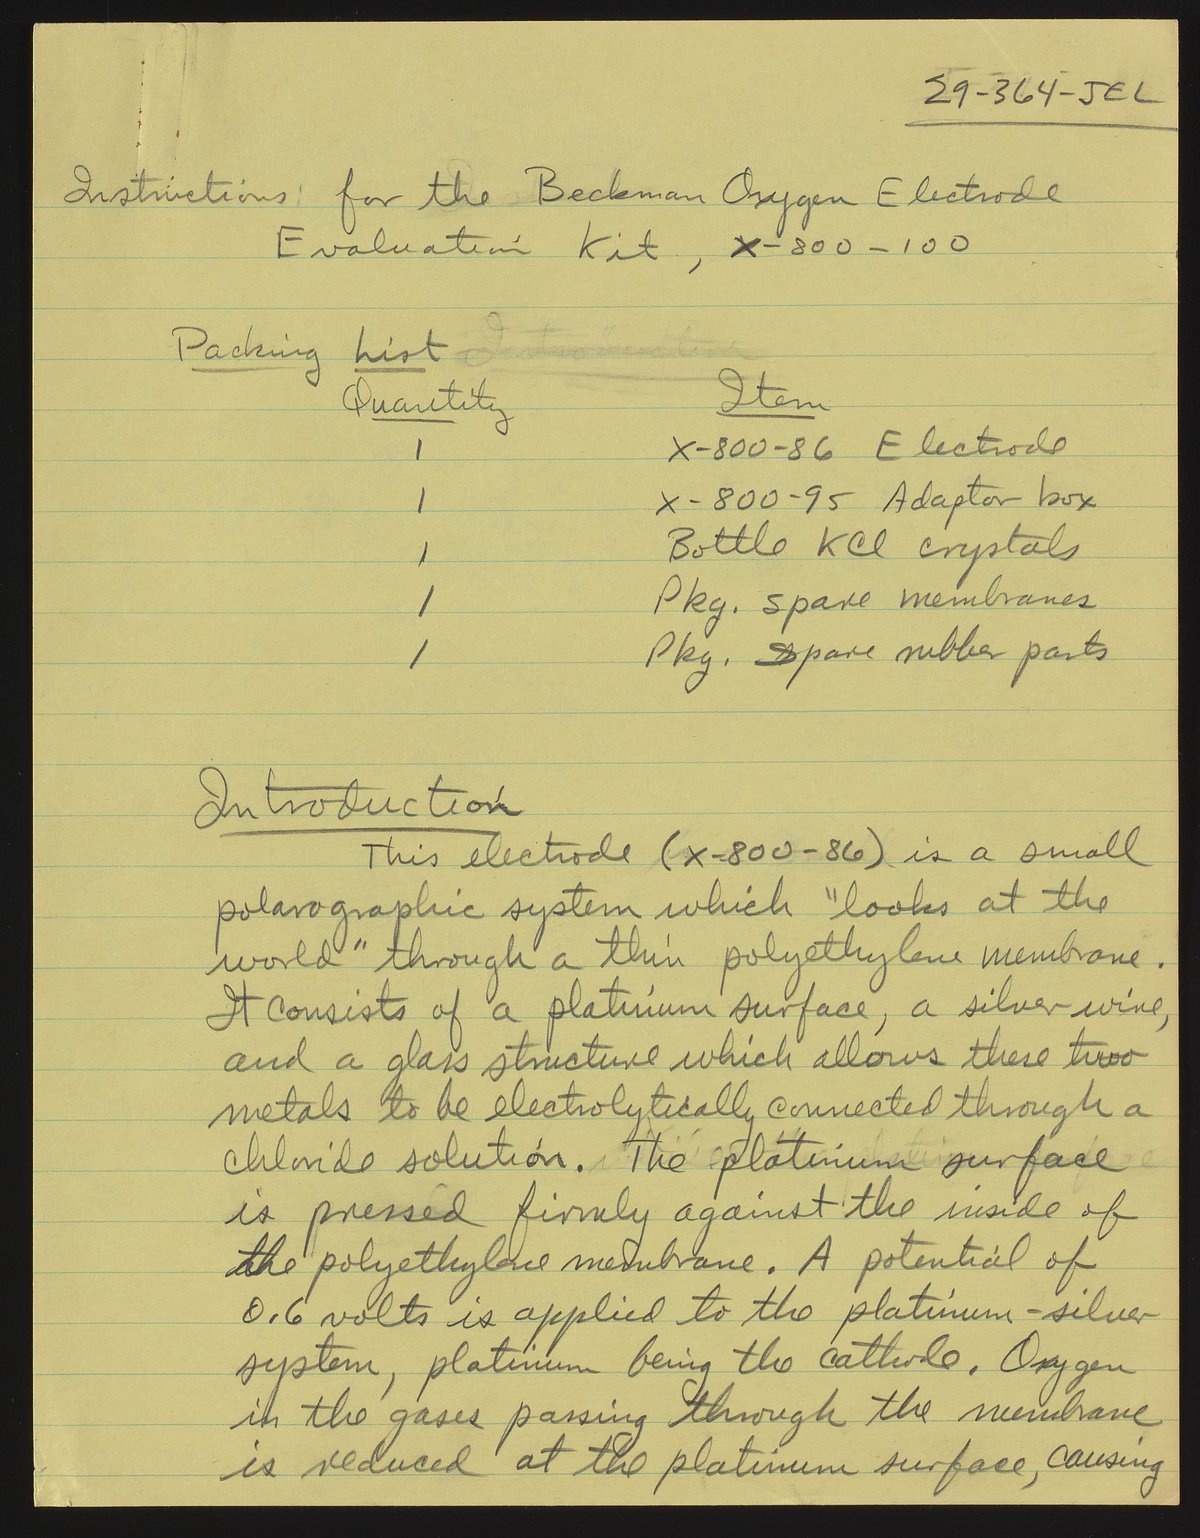 29-364-JEL
Instructions for the Beckman Oxygen Electrode
Evaluation Kit, X-800-100
Packing List
Quantity Item
1 X-800-86 Electrode
1 X-800-95 Adaptor box
1 Bottle KCl crystals
1 Pkg. spare membranes
1 Pkg. spare rubber parts
Introduction
This electrode (X-800-86) is a small
polarographic system which "looks at the
world" through a thin polyethylene membrane.
It consists of a platinum surface, a silver wire,
and a glass structure which allows these two
metals to be electrolytically connected through a
chloride solution. The platinum surface
is pressed firmly against the inside of
the polyethylene membrane. A potential of
0.6 volts is applied to the platinum-silver
system, platinum being the cathode. Oxygen
in the gases passing through the membrane
is reduced at the platinum surface, causing